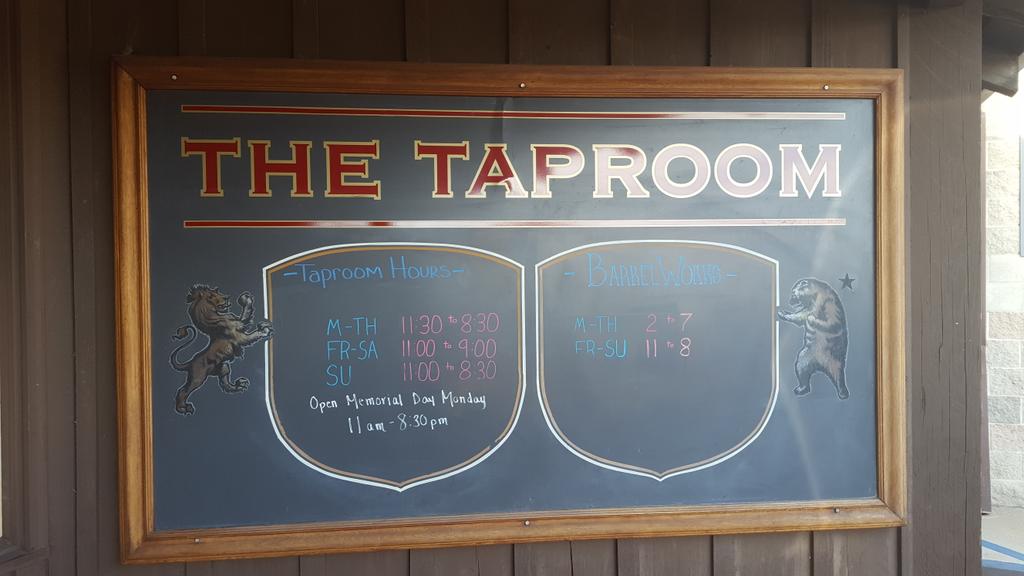 THE TAPROOM
-Taproom Hours-
M-TH 11:30 to 8:30
FR-SA 11:00 to 9:00
SU 11:00 to 8:30
Open Memorial Day Monday
11am-8:30pm
- BARRELWORKS -
M-TH 2 to 7
FR-SU 11 to 8